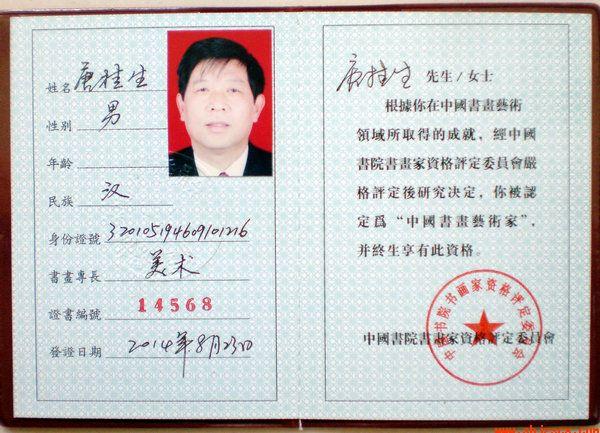 姓名 唐桂生
性别 男
年龄
民族 汉
身份證號 320105194609101216
書畫專長 美术
證書編號 14568
發證日期 2014年8月23日
唐桂生 先生/女士
根據你在中國書畫藝術
領域所取得的成就，經中國
書院書畫家資格評定委員會嚴
格評定後研究決定，你被認
定爲“中國書畫藝術家”，
并終生享有此資格。
中國書院書畫家資格評定委員會
中国书院书画家资格评定委员会